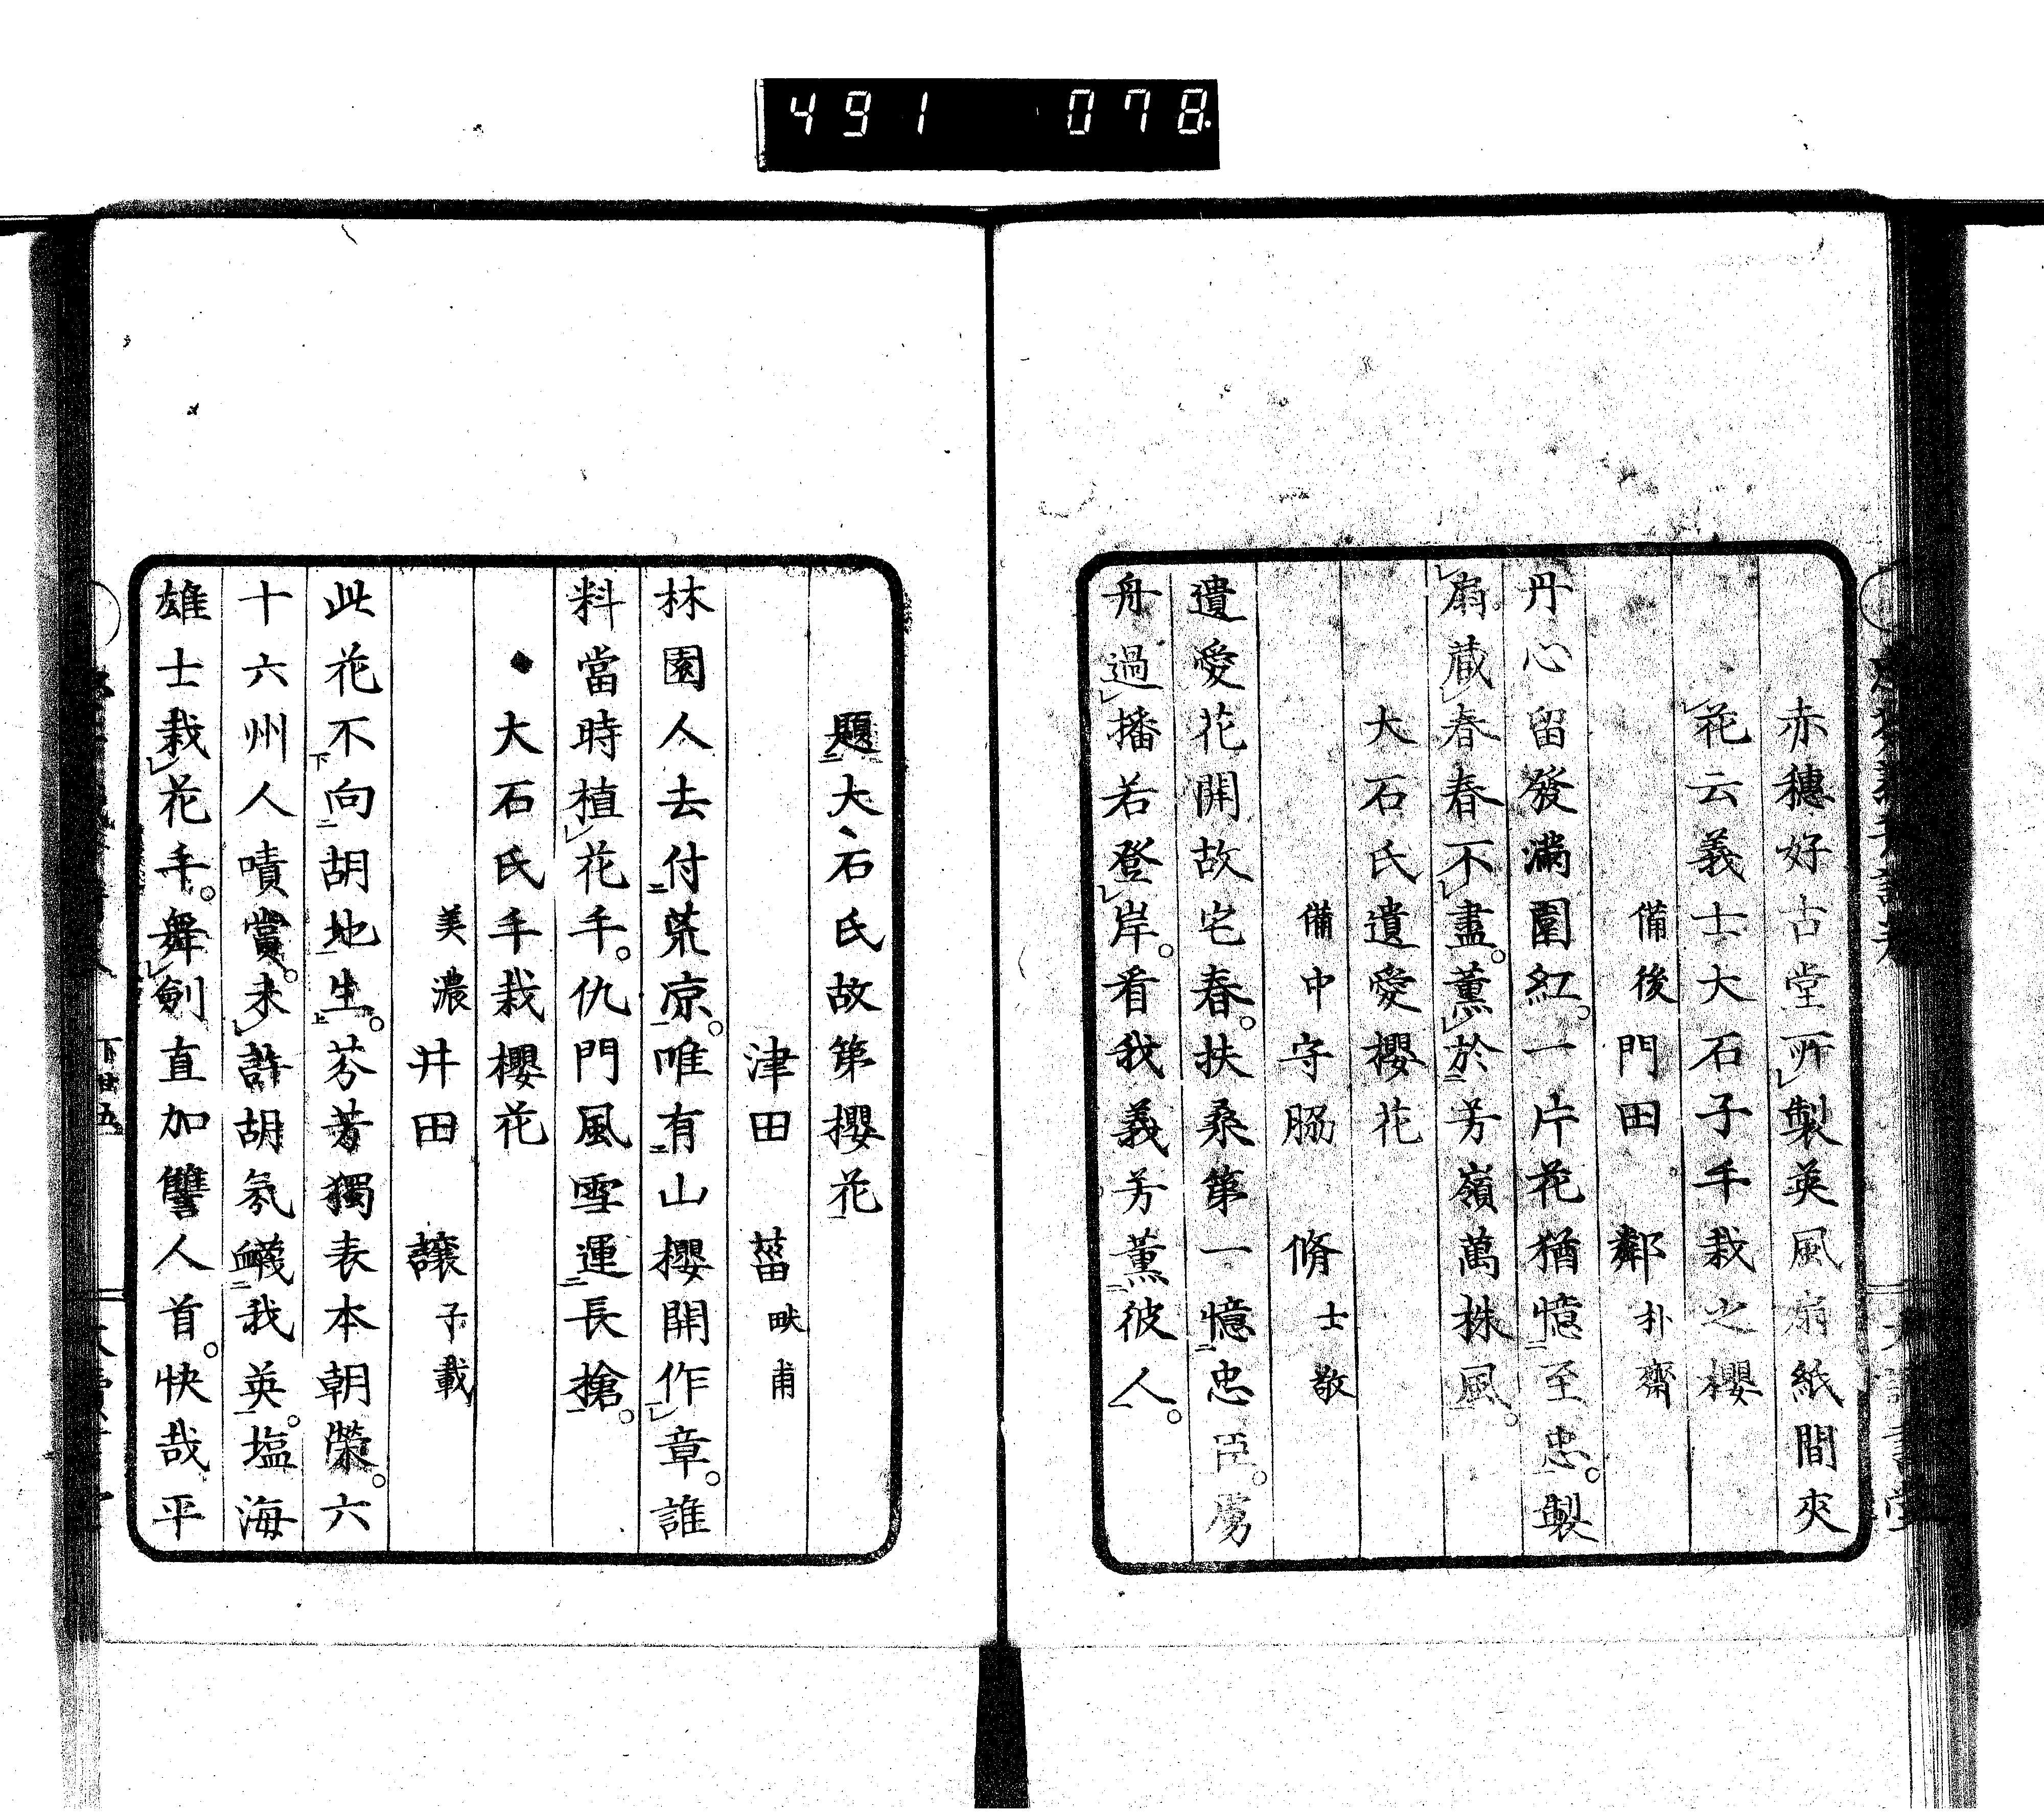 491 078
赤穗好古堂所製英風扇紙間夾
花云義士大石子手栽之櫻
備後 門田 鄰 朴齋
丹心留發滿園紅。一片花猶憶至忠。製
扇藏春春不盡。薰於芳嶺萬株風。
大石氏遺愛櫻花
備中 守脇 脩 士敬
遺愛花開故宅春。扶桑第一憶忠臣。
舟過播若登岸。看我義芳薰彼人。
題大石氏故第櫻花
津田 菑 畎甫
林園人去付荒凉。唯有山櫻開作章。誰
料當時植花手。仇門風雪運長槍。
大石氏手栽櫻花
美濃 井田 讓 子載
此花不向胡地生。芬芳獨表本朝榮。六
十六州人嘖賞。未許胡氛衊我英。塩海
雄士栽花手。舞劍直加讐人首。快哉平
下 廿五